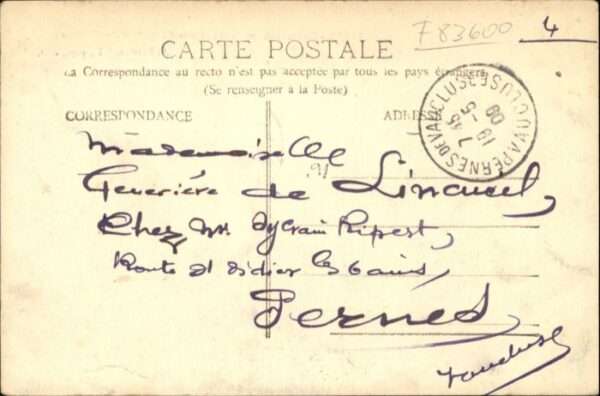 F83600 4
CARTE POSTALE
La Correspondance au recto n'est pas acceptée par tous les pays étrangers
(Se renseigner à la Poste)
CORRESPONDANCE
ADRES
PERNES DE VAUCLUSE VAUCLUSE
7 45
19 -5
09
Mademoiselle
Geneviève de
Chez Mr Sylvain Ripert,
Route St Didier les bains,
Pernes
Vaucluse